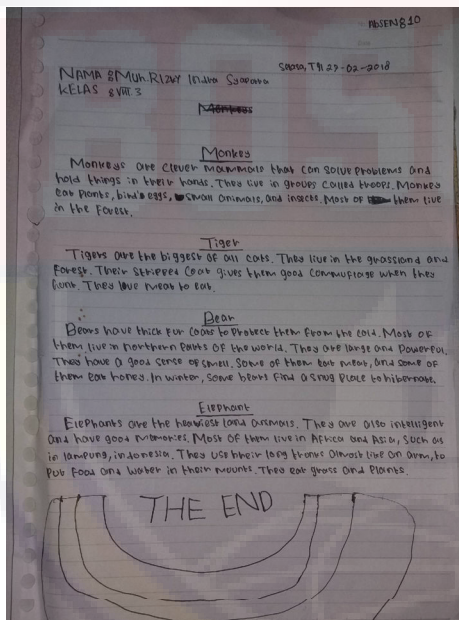 ABSEN810
Sabtu, Tgl 27-02-2018
NAMA : Muh. Rizky Indra Syaputra
KELAS : VIII.3
Monkeys
Monkey
Monkeys are clever mammals that can solve problems and
hold things in their hands. They live in groups called troops. Monkey
eat plants, bird's eggs, small animals, and insects. Most of them live
in the forest.
Tiger
Tigers are the biggest of all cats. They live in the grassland and
forest. Their stripped coat gives them good commuflage when they
hunt. They love meat to eat.
Bear
Bears have thick fur coats to protect them from the cold. Most of
them live in northern parts of the world. They are large and powerful.
They have a good sense of smell. Some of them eat meat, and some of
them eat honey. In winter, some bears find a snug place to hibernate.
Elephant
Elephants are the heabiest land animals. They are also intelligent
and have good memories. Most of them live in Africa and Asia, such as
in lampung, indonesia. They use their long trunks almost like an arm, to
put food and water in their mounts. They eat grass and plants.
THE END